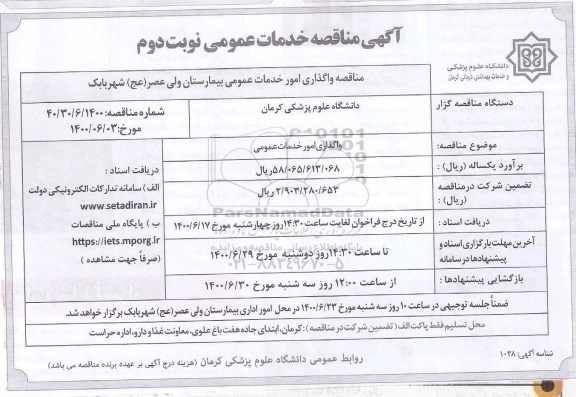 آگهی مناقصه خدمات عمومی نوبت دوم
دانشگاه علوم پزشکی
و خدمات بهداشتی درمانی کرمان
مناقصه واگذاری امور خدمات عمومی بیمارستان ولی عصر(عج) شهربابک
دستگاه مناقصه گزار
دانشگاه علوم پزشکی کرمان
شماره مناقصه: ۴۰/۳۰/۶/۱۴۰۰
مورخ: ۱۴۰۰/۰۶/۰۳
موضوع مناقصه:
واگذاری امور خدمات عمومی
برآورد یکساله (ریال) :
۵۸/۰۶۵/۶۱۳/۰۶۸ریال
تضمین شرکت در مناقصه (ریال) :
۲/۹۰۳/۲۸۰/۶۵۳ریال
دریافت اسناد :
از تاریخ درج فراخوان لغایت ساعت ۱۴:۳۰ روز چهارشنبه مورخ ۱۴۰۰/۶/۱۷
آخرین مهلت بارگزاری اسناد و
پیشنهادها در سامانه
تا ساعت ۱۴:۳۰ روز دوشنبه مورخ ۱۴۰۰/۶/۲۹
بازگشایی پیشنهادها :
از ساعت ۱۲:۰۰ روز سه شنبه مورخ ۱۴۰۰/۶/۳۰
دریافت اسناد :
الف) سامانه تدارکات الکترونیکی دولت
www.setadiran.ir
ب ) پایگاه ملی مناقصات
https://iets.mporg.ir
(صرفاً جهت مشاهده )
ضمناً جلسه توجیهی در ساعت ۱۰ روز سه شنبه مورخ ۱۴۰۰/۶/۲۳ در محل امور اداری بیمارستان ولی عصر(عج) شهربابک برگزار خواهد شد.
محل تسلیم فقط پاکت الف (تضمین شرکت در مناقصه ) : کرمان، ابتدای جاده هفت باغ علوی، معاونت غذا و دارو، اداره حراست
شناسه آگهی: ۱۰۲۸
روابط عمومی دانشگاه علوم پزشکی کرمان (هزینه درج آگهی بر عهده برنده مناقصه می باشد)
ParsNamadData
پایگاه اطلاع رسانی مناقصه و مزایده
۰۲۱-۸۸۳۴۹۶۷۰-۵